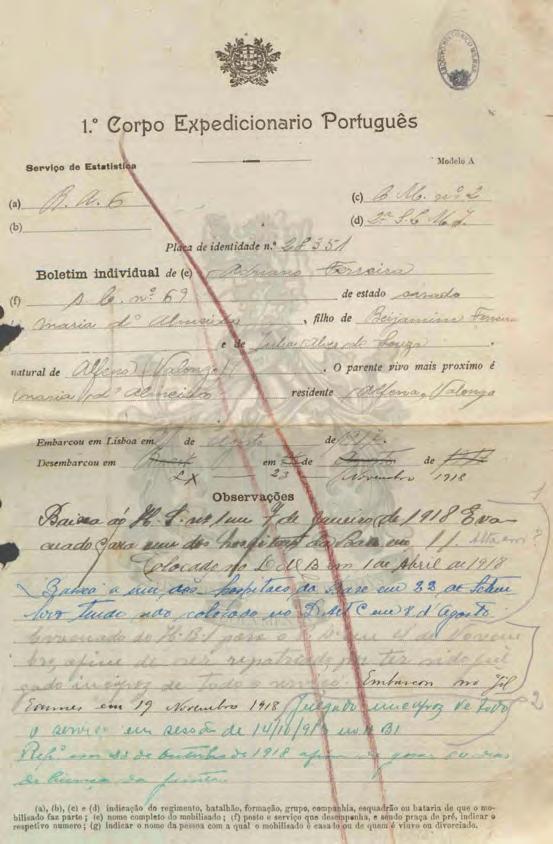 1.º Corpo Expedicionario Português
Serviço de Estatistica
Modelo A
(a) R. A. 6 (c) C. M. nº 2
(b) (d)
Placa de identidade n.º 28351
Boletim individual de (e) Adriano Ferreira
(f) s. c. nº 69 de estado casado
maria d' Almeida, filho de Benjamim Ferreira
e de Julia Alves de Souza
natural de Alfena (Valongo). O parente vivo mais proximo é
(maria d' Almeida) residente Alfena, Valongo
Embarcou em Lisboa em de Agosto de
Desembarcou em em de de
LX 23 Novembro 1918
Observações
Baixa ao H. S. nº 1 em 7 de Janeiro de 1918 Eva-
cuado para um dos hospitaes da Base em 11 Alta em? 1
Colocado no D M B em 1 de Abril de 1918
Baixa a um dos hospitaes da Base em 23 de Setem-
bro tendo sido colocado no D de C em de Agosto
Evacuado do H. B. 1 para o em 4 de Novem-
bro, afim de ser repatriado, por ter sido jul-
gado incapaz de todo o serviço. Embarcou no Gil
Eannes em 19 Novembro 1918 Julgado incapaz de todo 2
o serviço em sessão de 14/10/918 no H B 1
em de Outubro de 1918 afim de gozar 60 dias
de licença da junta
(a), (b), (c) e (d) indicação do regimento, batalhão, formação, grupo, companhia, esquadrão ou bataria de que o mo-
bilisado faz parte; (e) nome completo do mobilisado; (f) posto e serviço que desempenha, e sendo praça de pré, indicar o
respetivo numero; (g) indicar o nome da pessoa com a qual o mobilisado é casado ou de quem é viuvo ou divorciado.